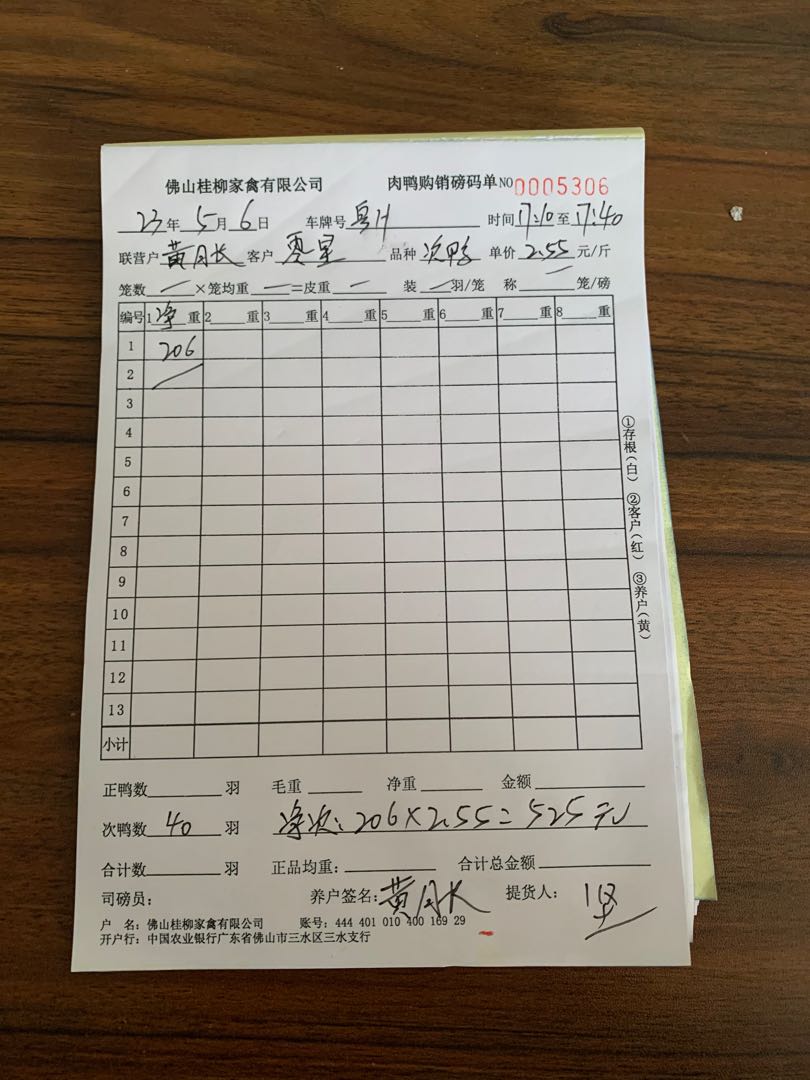 佛山桂柳家禽有限公司 肉鸭购销磅码单 NO 0005306
23年 5月 6日 车牌号 粤H 时间 17:10 至 17:40
联营户 黄月长 客户 零星 品种 次鸭 单价 2.55 元/斤
笼数 — ×笼均重 — =皮重 — 装 — 羽/笼 称 — 笼/磅
编号 1 净 重 2 重 3 重 4 重 5 重 6 重 7 重 8 重
1 206
2
3
4
5
6
7
8
9
10
11
12
13
小计
①存根(白) ②客户(红) ③养户(黄)
正鸭数 羽 毛重 净重 金额
次鸭数 40 羽 净次: 206×2.55=525元
合计数 羽 正品均重: 合计总金额
司磅员: 养户签名: 黄月长 提货人:
户 名: 佛山桂柳家禽有限公司 账号: 444 401 010 400 169 29
开户行: 中国农业银行广东省佛山市三水区三水支行